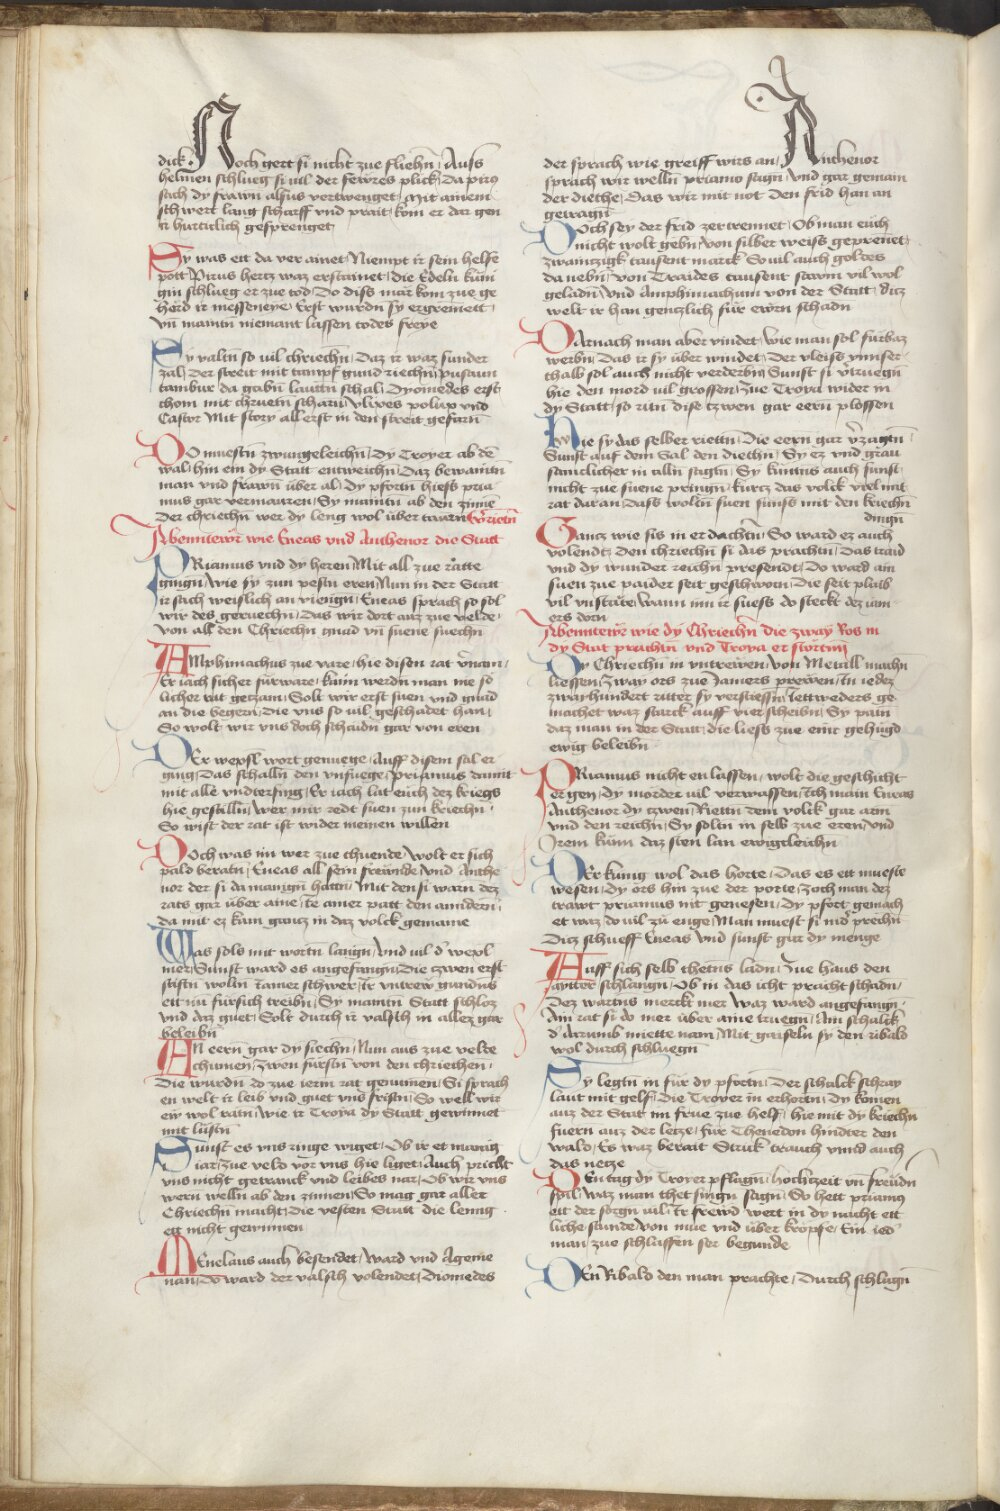 dick. Noch gert si nicht zue fliehn, Auss
helmen schlueg si vil der fewres plick, Da piro
sach dy frawn alsus vertwenget, Mit ainem
schwert lang scharff vnd prait, kom er dar gen
ir hurticlich gesprenget,
Sy was ett da ver ainet, Niempt ir sein helfe
pott, Pirus hertz waz erstainet, die Edeln küni
gin schlueg er zue tod, Do diss mär kom zue ge
hörd ir messeneye, Erst wurdn sy ergremett,
vn maintn niemant lassen todes freye
Sy valtn so vil chriechn, Daz ir waz sunder
zal, Der streit mit tampf gund riechn, pusaun
tambur da gabn lauttn schal, Dyomedes erst
chom mit chruem scharn, vlixes polux vnd
Castor Mit story all erst in den streit gefarn
DO muestn zwungeleichn, Dy Troyer ab de
wal, hin ein dy Statt entweichn, Daz bewaintn
man vnd frawn über al, Dy pfortn hiess pria
mus gar vermauren, Sy maintn ab den zinne
Der chriechn wer dy leng wol über taurn Verrietn
Abenntewr wie Eneas vnd Anthenor die Statt
PRiamus vnd dy heren Mit all zue rätte
gingn, Wie sy zun pestn eren, Nun in der Statt
ir sach weislich an viengn, Eneas sprach so sol
wir des geruechn, Das wir dort auz zue velde,
von all den Chriechn gnad vn suene suechn
AMphimachus zue vare, hie disen rat vernam,
Er iach sicher fürware, kaim werdn man nie so
licher rat gezam, Solt wir erst suen vnd gnad
an die begern, Die vns so vil geschadet han,
So wolt wir vns doch schaidn gar von eren
DEr wepsl wort genuege, Auff disem sal er
ging, Das schalln den vnfuege, priamus damit
mit alle vndterfing, Er iach lat euch dez kriegs
hie gestilln, Wer mir redt suen zun kriechn,
So wist der rat ist wider meinen willen
DOch was im wer zue chuende, wolt er sich
pald beratn, Eneas all sein freunde, Vnd Anthe
nor der si da manign hattn, Mit den si warn dez
rats gar über aine, Ie ainer patt den anndern,
da mit ez kam gantz in daz volck gemaine
Was sols mit wortn langn, Vnd vil der wexl
mer, Sunst ward es angefangn, Die tzwen erst
stiftn wolln iamer schwer, Ir vntrew gundns
ett nu fürsich treibn, Sy maintn Statt schloz
vnd daz guet, Solt durch ir valsch in allez gar
beleibn
AN eern gar dy siechn, Nun aus zue velde
chumen, Zwen fürstn von den chriechen,
Die wurdn do zue ierm rat genumen, Si sprach
en welt ir leib vnd guet vns fristn, So well wir
ew wol ratn, Wie ir Troya dy Statt gewinnet
mit listn
Sunst es vns ringe wiget, Ob ir et manig
iar, Zue veld vor vns hie liget, Auch pricht
vns nicht getranck vnd leibes nar, Ob wir vns
wern welln ab den zinnen, So mag gar aller
Chriechn macht, Die vesten Statt die lenng
ett nicht gewinnen
MEnelaus auch besendet, Ward vnd Ageme
nan, Do ward der valsch volendet, Diomedes
der sprach wie greiff wirs an, Anthenor
sprach wir welln priamo sagn, Vnd gar gemain
der diethe, Das wir mit not den frid han an
getragn
DOch sey der frid zertrennet, Ob man euch
nicht wolt gebn, von silber weiss geprennet,
zwaintzigk tausent marck, So vil auch goldes
da nebn, Von Traides tausent starm vil wol
geladn, Vnd Amphimachum von der Statt, diz
welt ir han genczlich für ewrn schadn
DArnach man aber vindet, Wie man sol fürbaz
werbn, Das ir sy über windet, Der vleiss ynnser
thalb sol auch nicht verderbn, Sunst si vtruegn
hie den mord vil grossen, Zue Troya wider in
dy Statt, so ritn dise tzwen gar eern plossen
Wie sy das selber riettn, Die eern gar verzagtn,
Sunst auf dem Sal den diethn, Sy ez vnd grau
samlicher in alln sagtn, Sy kuntns auch sunst
nicht zue suene pringn, kurtz das volck viel mit
rat daran, Dass woltn suen sunss mit den kriechn
dingn
Gantz wie sis in erdachtn, So ward ez auch
volendt, Den chriechn si das prachtn, Das traid
vnd dy wunder reichn presendt, Do ward ain
suen zue paider seit geschworn, Die seit plaib
vil vnstäte, wann inn ir suess do steckt dez iam
ers dorn
Abenntewr wie dy Chriechn die zway Ros in
dy Stat prachtn vnd Troya erstörtnn
Dy Chriechn in vntrewen, von Metall machn
liessen, Zway ors zue iamers prewen, In iedez
zwayhundert ritter sy versliessn, Iettweders ge
machet waz starck auff vier scheibn, Sy paten
daz man in der Statt, die liess zue einr gehügd
ewig beleibn
PRiamus nicht enlassen, wolt die geschicht
ergen, Dy mörder vil verwassen, Ich main Eneas
Anthenor dy tzwen, Rietn dem volck gar arm
vnd den reichn, Sy soltn in selb zue eren, Vnd
Irem künn daz sten lan ewigcleichn
DEr kunig wol das horte, Das es ett mueste
wesen, Dy ors hin zue der porte, Zoch man dez
trawt priamus nit genesen, Dy pfort gemach
et waz do vil zu enge, Man muest si nider prechn
Ditz schueff Eneas Vnd sunst gar dy menge
AUff sich selb thetns ladn, Zue haus den
aytter schlangn, Ob in das icht pracht schadn,
Dez wartns merckt mer waz ward angefangn,
Ain rat si do mer über aine truegn, Ain schalck
d' Arrumb miette nam, Mit gaiseln sy den ribald
wol durch schluegn
Sy legtn in für dy pfortn, Der schalck schray
laut mit gelf, Die Troyer in erhortn, Dy komen
auz der Stat im frue zue helf, hie mit dy kriechn
fuern auz der letze, für Thenedon hindter den
wald, Ez waz berait Strick trauch vnnd auch
das netze
DEn tag dy Troyer pflagn, hochzeit vn freudn
spil, Waz man thet singn sagn, So hett priamus
ett der sorgn vil, Ir frewd wert in dy nacht ett
liche stunde, von mue vnd über kröpfe, Ein ied
man zue schlaffen ser begunde
DEn Ribald den man prachte, Durch schlagn